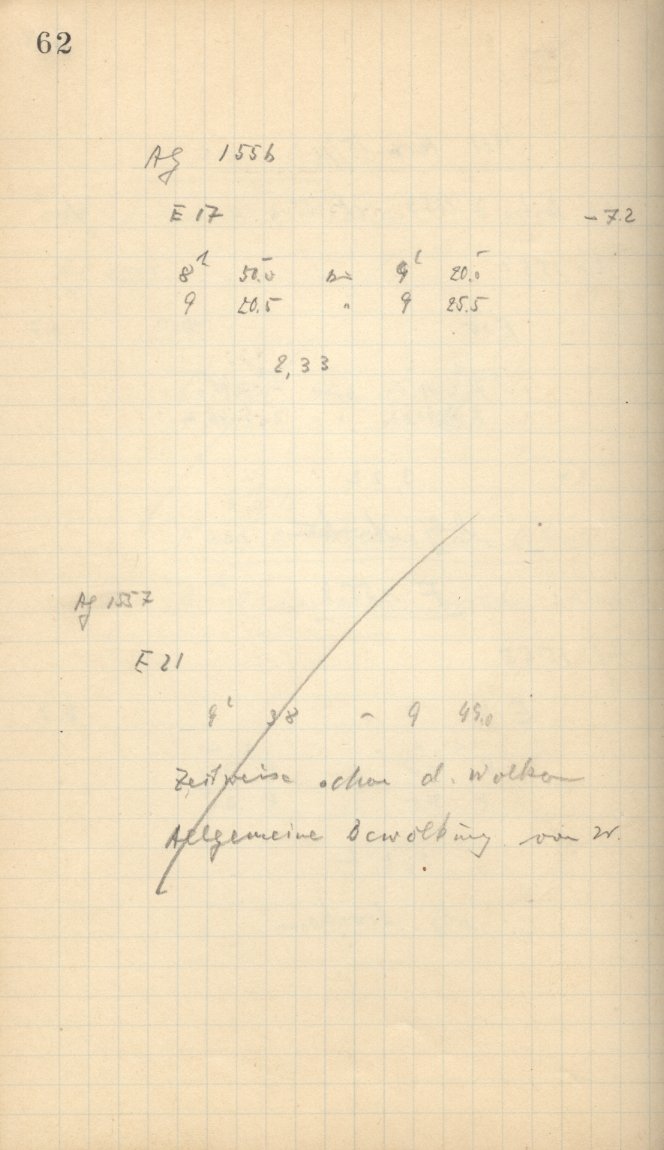 62
AG 1556
E 17 - 7.2
8h 50.0 bis 9h 20.0
9 20.5 " 9 25.5
2,33
AG 1557
E 21
9h 38 - 9 49.0
Zeitweise schon d. Wolken
Allgemeine Bewölkung von W.